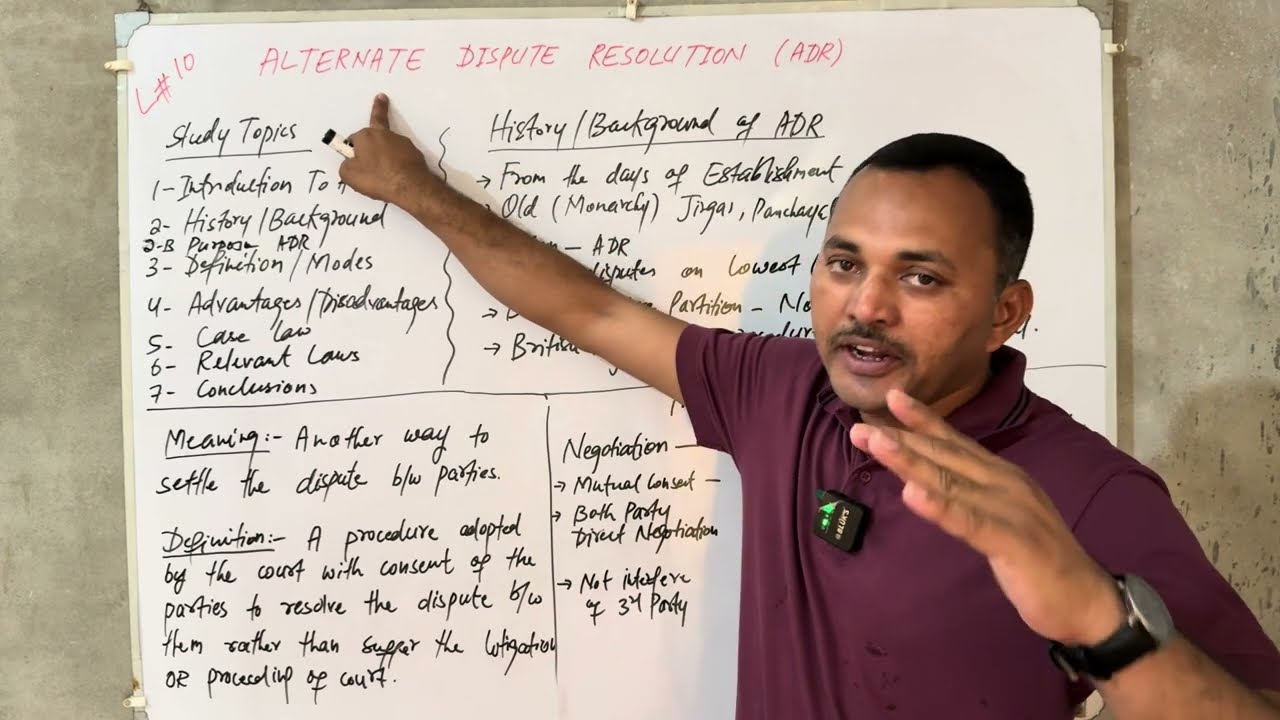 L#10
ALTERNATE DISPUTE RESOLUTION (ADR)
Study Topics
1- Introduction To
2- History/Background
2-B Purpose ADR
3- Definition/Modes
4- Advantages/Disadvantages
5- Case law
6- Relevant Laws
7- Conclusions
History/Background of ADR
→ From the days of Establishment
Old (Monarchy) Jirgas, Panchayc
– ADR
disputes on lowest
→ Partition – No
→ British
Meaning:- Another way to
settle the dispute b/w parties.
Definition:- A procedure adopted
by the court with consent of the
parties to resolve the dispute b/w
them rather than suffer the litigation
OR proceeding of court.
Negotiation —
→ Mutual Consent –
→ Both Party
Direct Negotiation
→ Not interfere
of 3rd Party
BLUKS